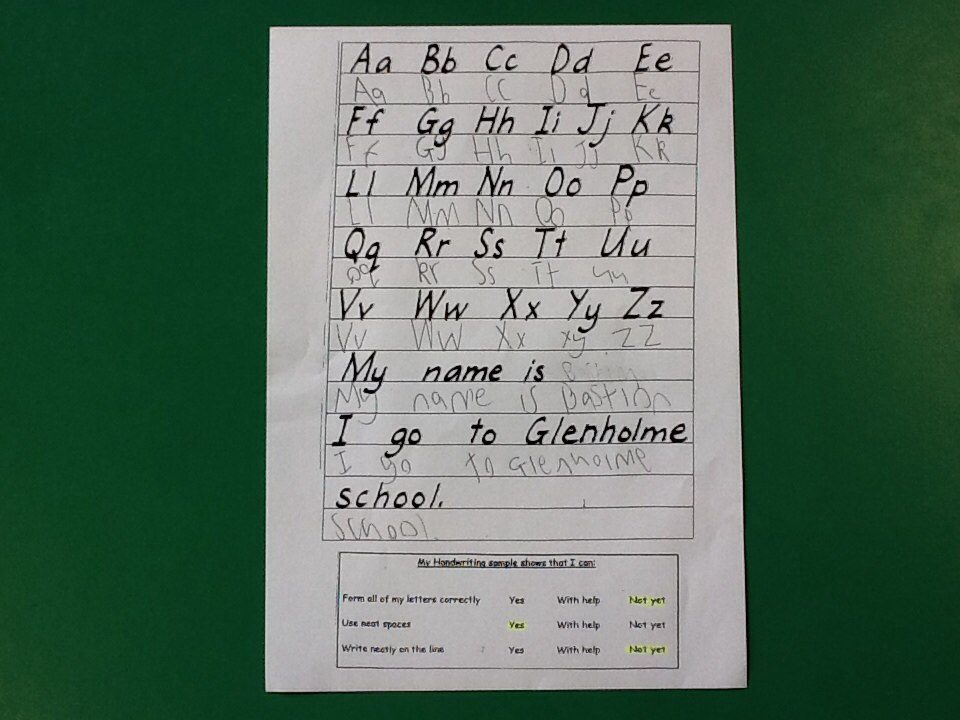 Aa Bb Cc Dd Ee
Aa Bb CC Dd Ee
Ff Gg Hh Ii Jj Kk
Ff Gg Hh Ii Jj KK
Ll Mm Nn Oo Pp
Ll Mm Nn Oo Pp
Qq Rr Ss Tt Uu
Qq Rr Ss Tt uu
Vv Ww Xx Yy Zz
Vv Ww Xx xy ZZ
My name is
My name is Bastion
I go to Glenholme
I go to Glenholme
school.
School.
My Handwriting sample shows that I can:
Form all of my letters correctly Yes With help Not yet
Use neat spaces Yes With help Not yet
Write neatly on the line Yes With help Not yet